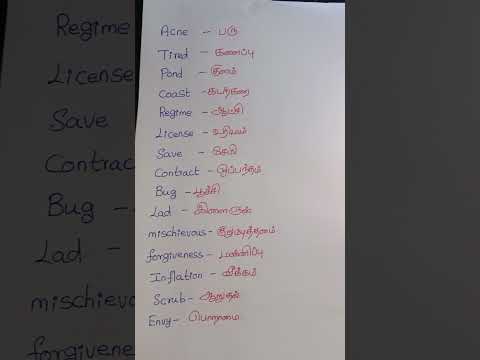 Acne - பரு
Tired - களைப்பு
Pond - குளம்
Coast - கடற்கரை
Regime - ஆட்சி
License - உரிமம்
Save - சேமி
Contract - ஒப்பந்தம்
Bug - பூச்சி
Lad - இளைஞன்
mischievous - குறும்புத்தனம்
forgiveness - மன்னிப்பு
Inflation - வீக்கம்
Scrub -
Envy - பொறாமை
Regime
License
Save
Contract
Bug -
Lad -
mischievous
forgiveness